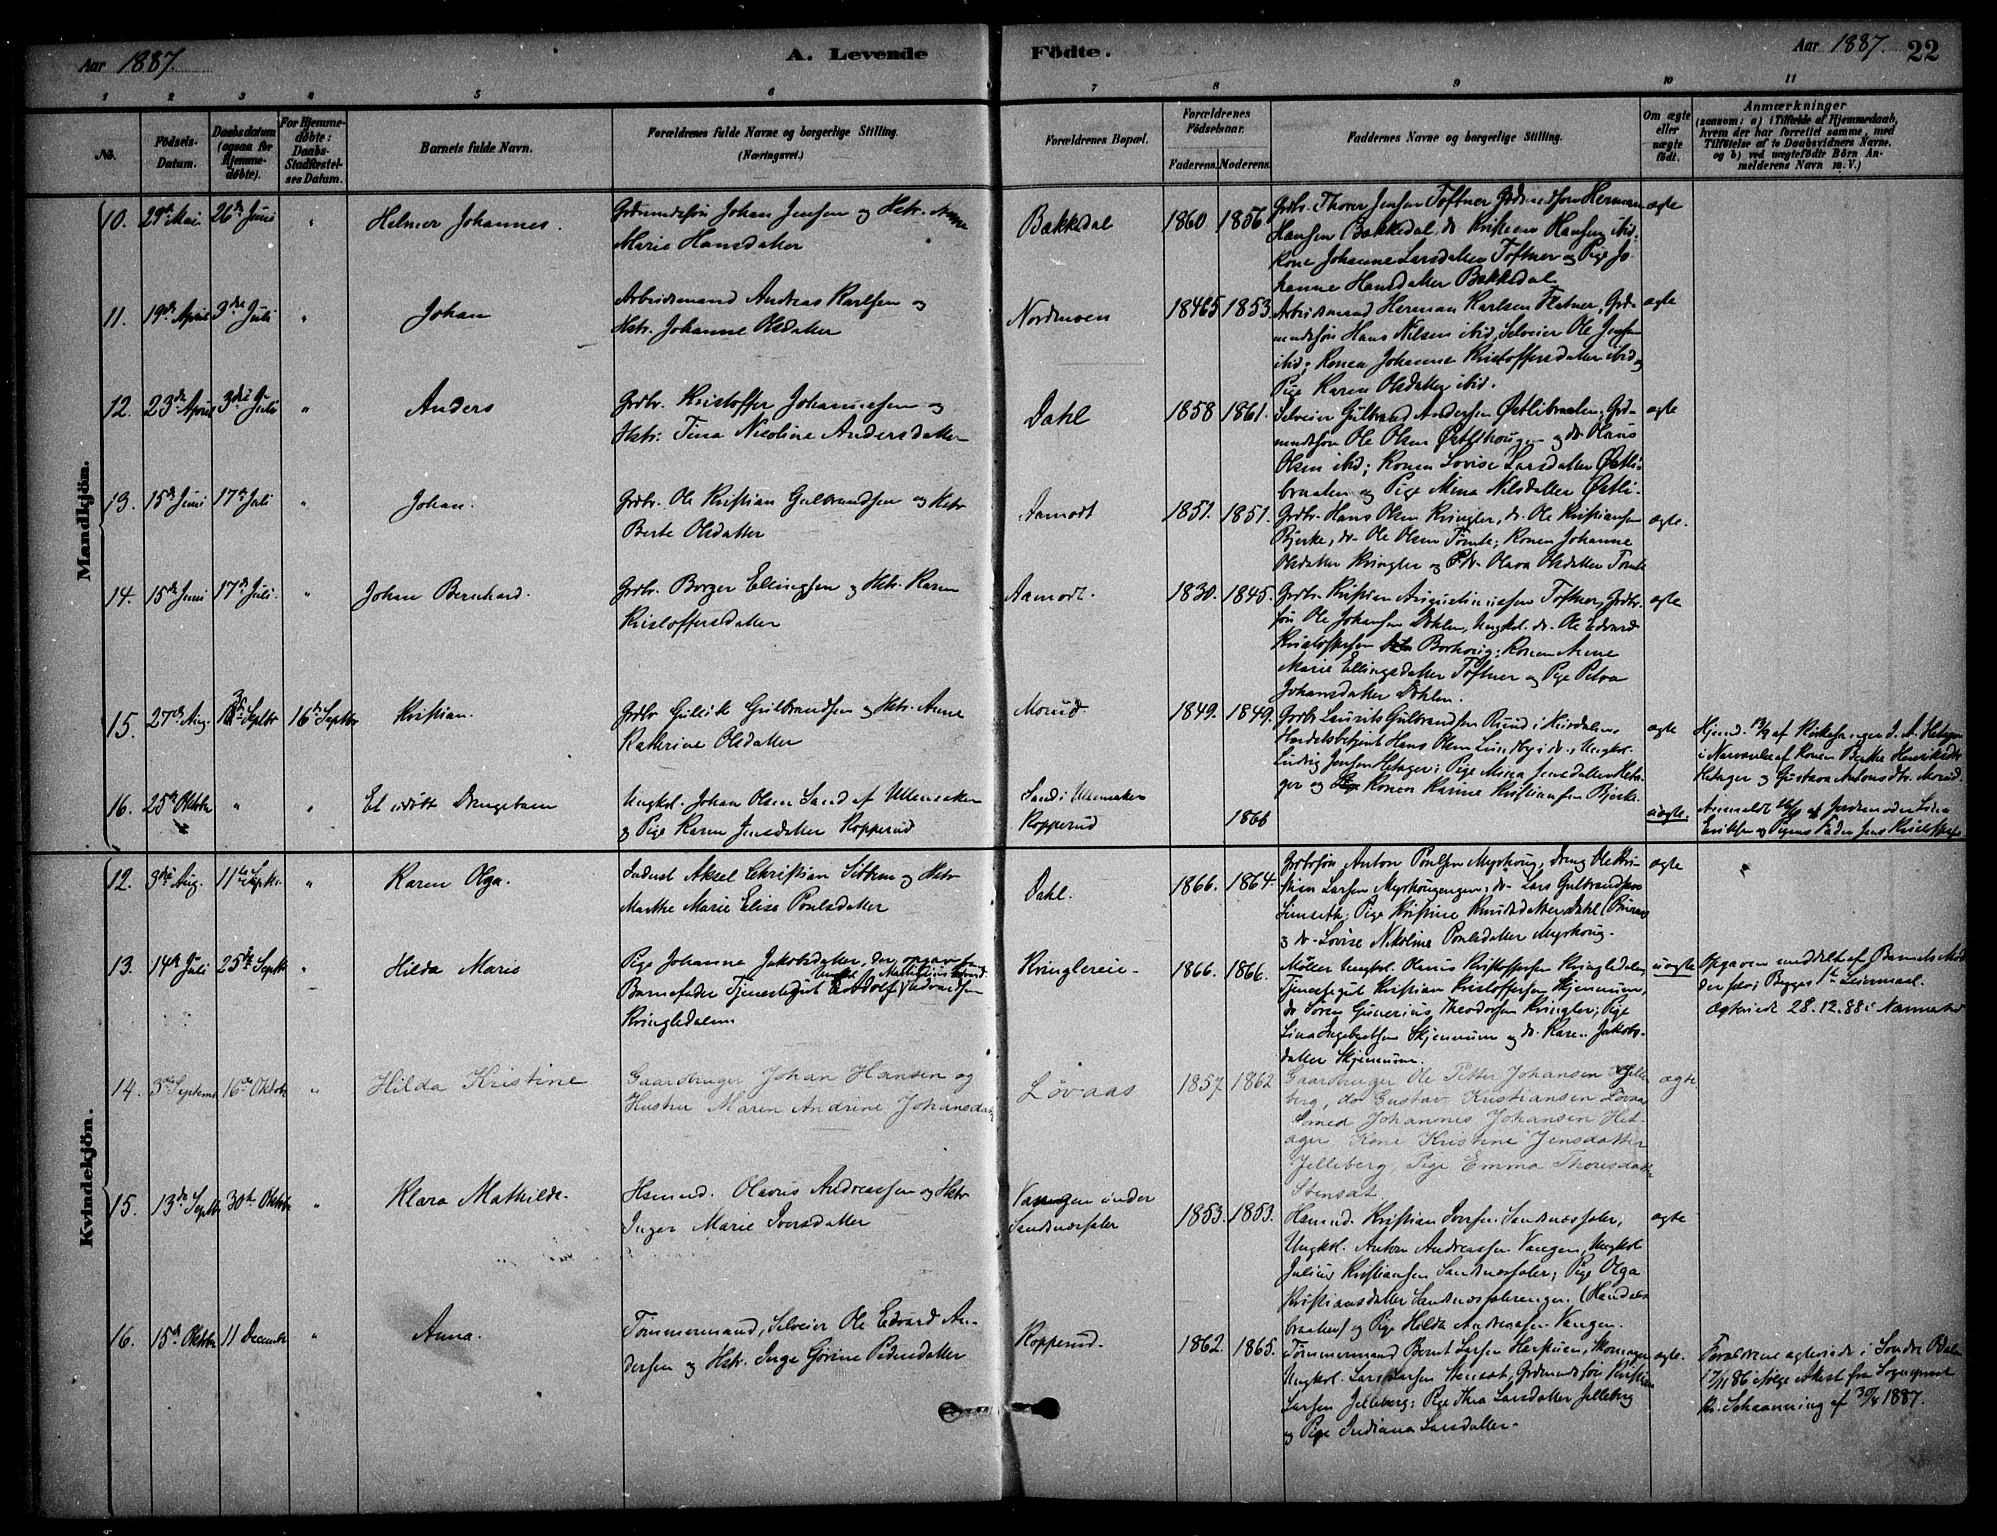 Aar 1887. A. Levende Födte. Aar 1887. 22
1 2 3 4 5 6 7 8 9 10 11
No.
Födsels-Datum.
Daabsdatum (ogsaa for Hjemmedøbte).
For Hjemmedøbte: Daabs-Stadfæstelses Datum.
Barnets fulde Navn.
Forældrenes fulde Navne og borgerlige Stilling.
(Næringsvei.)
Forældrenes Bopæl.
Forældrenes Födselsaar.
Faderens. Moderens.
Faddernes Navne og borgerlige Stilling.
Om ægte eller uægte födt.
Anmærkninger
(saasom: a) i Tilfælde af Hjemmedaab, hvem der har forrettet samme, med Tilföielse af to Daabsvidners Navne, og b) ved uægtefödte Börn Anmelderens Navn m. V.)
Mandkjön.
10. 29de Mai 26de Juni " Helmer Johannes. Grdmandssøn Johan Jensen og Hstr. Anne
Marie Hansdatter
Bækkedal 1860 1856
Grdbr. Thorer Jensen Toftner Grdmdssøn Herman
Hansen Bækkedal, do Kristian Hansen ibid;
Kone Johanne Larsdatter Toftner og Pige Jo-
hanne Hansdatter Bækkedal
ægte
11. 19de April 3die Juli " Johan
Arbeidsmand Andreas Karlsen og
Hstr. Johanne Olsdatter
Nordmoen 1853
Arbeidsmand Herman Karlsen Flatner, Grd-
mandssøn Hans Nilsen ibid, Selveier Ole Jensen
ibid; Konen Johanne Kristoffersdatter ibid og
Pige Karen Olsdatter ibid.
ægte
12. 23de April 3die Juli " Anders
Grdbr. Kristoffer Johannesen og
Hstr: Tina Nicoline Andersdatter
Dahl 1858 1861.
Selveier Gulbrand Andersen Østlibraaten, Grd-
mandssøn Ole Olsen Østlihaugen og do Olaus
Olsen ibid; Konen Lovise Larsdatter Østli-
braaten og Pige Mina Nilsdatter Østli-
ægte
13. 15de Juni 17de Juli " Johan.
Grdbr. Ole Kristian Gulbrandsen og Hstr
Berte Olsdatter
Aamodt 1851. 1851.
Grdbr. Hans Olsen Kringler, do. Ole Kristiansen
Bjerke, do Ole Olsen Tømte; Konen Johanne
Olsdatter Kringler og do Olava Olsdatter Tømte
ægte.
14. 15de Juni 17de Juli. " Johan Bernhard.
Grdbr. Borger Ellingsen og Hstr. Karen
Kristoffersdatter
Aamodt. 1830. 1845.
Grdbr. Kristian Augustinussen Toftner, Grdbr.
søn Ole Johansen Døhlen, Ungkal. do. Ole Edvard
Kristoffersen Borhaug; Konen Anne
Marie Ellingsdatter Toftner og Pige Petra
Johansdatter Døhlen.
ægte
15. 27de Aug. Septbr 16de Septbr Kristian.
Grdbr Gulbrandsen og Hstr. Anne
Kathrine Olsdatter
Morud. 1849. 1849.
Grdbr Laurits Gulbrandsen Ruud i Hurdalen,
Handelsbetjent Hans Olsen Lundby i do, Ungkal.
Ludvig Jensen Hetager; Pige Mina Jensdatter Heta-
ger og Konen Karine Kristiansen Bjerke.
ægte
Hjemd. 13/9 af Kirkesanger J. A. Hetager
i Nærværelse af Konen Berthe Henriksdtr
Hetager og Gustava Antonsdtr. Morud.
16. 25de Oktbr " " Et udøbt Drengebarn
Ungkal. Johan Olsen Sand af Ullensaker
og Pige Karen Jensdatter Kopperud
Sand i Ullensaker
Kopperud
1866
uægte.
Anmeldt af Jordemoder Lina
Eriksen og Pigens Fader Jens
Kvindekjön.
12. 3die Aug. 11te Septbr. " Karen Olga.
Inderst Aksel Christian og Hstr
Marthe Marie Elise Poulsdatter
Dahl. 1866. 1864.
Grdbrsøn Anton Poulsen Myrhaug, Dreng Ole Kri-
stian Larsen Myrhaugengen, do Lars Gulbrandsen
Simseth; Pige Kristine Knudsdatter Dahl
og do Lovise Nikoline Poulsdatter Myrhaug.
ægte
13. 14de Juli 25de Septbr " Hilda Marie
Pige Johanna Jakobsdatter, der opgav som
Barnefader Tjenestegut Adolf Edvardsen
Kringledalen.
Kringlereie 1866. 1866.
Møller Ungkal. Olaus Kristoffersen Kringledalen,
Tjenestegut Kristian Kristoffersen Skjennum,
do Søren Gunerius Theodorsen Kringler; Pige
Lina Ingebretsen Skjennum og do Karen Jakobs-
datter Skjennum.
uægte
Opgaven meddelt af Barnets Mo-
der selv; Begges 1ste Leiermaal.
Ægteviede 28.12.88 i Nannestad
14. 3die Septemb 16de Oktober " Hilda Kristine
Gaardbruger Johan Hansen og
Hustru Maren Andrine Johansdatter
Løvaas 1857 1862
Gaardbruger Ole Petter Johansen Jelle-
berg, do Gustav Kristiansen Løvaas
Smed Johannes Johansen Het-
ager, Kone Kristine Jensdatter
Jelleberg, Pige Emma Thoresdatter
Stensat.
ægte
15. 13de Septbr 30te Oktbr " Klara Mathilde.
Hsmnd. Olavus Andreassen og Hstr
Inger Marie Iversdatter
Vangen under
Sandnæsfaler
1853. 1853.
Hsmnd. Kristian Iversen Sandnæsfaler,
Ungkal. Anton Andreassen Vangen, Ungkal
Julius Kristiansen Sandnæsfaler; Pige Olga
Kristiansdatter Sandnæsfalerengen (Handels-
braaten) og Pige Hilda Andreassen Vangen.
ægte
16. 15de Oktbr 11 Decembr " Anna.
Tømmermand, Selveier Ole Edvard An-
dersen og Hstr. Inge Gorine Pedersdatter
Kopperud. 1862. 1865.
Tømmermand Bernt Larsen
Ungkal. Lars Larsen Stensat, Grdmandssøn Kristian
Larsen Jelleberg; Pige Thea Larsdatter Jelleberg
og Pige Indiana Larsdatter.
ægte.
Forældrene ægteviede i Søndre
17/11 86 ifølge Attest fra Sognepræst
Schaanning af 1887.